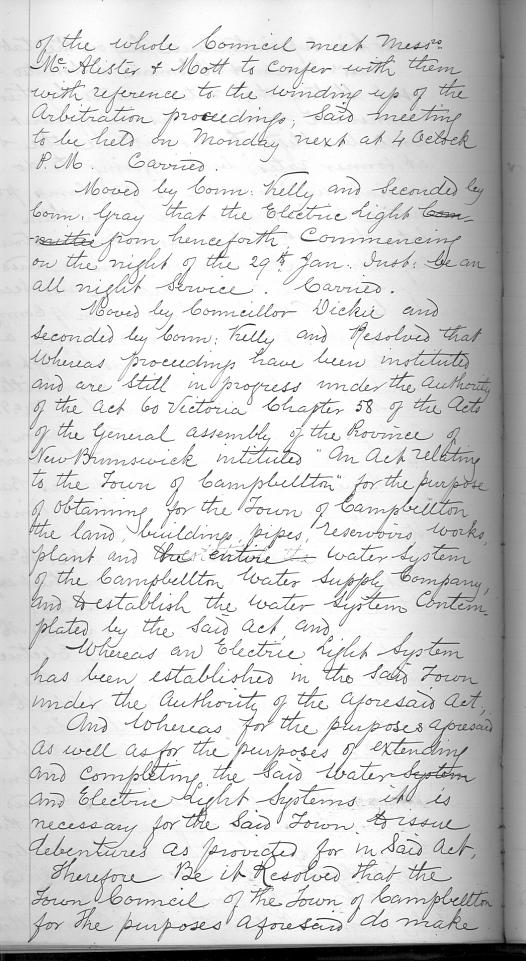 of the whole Council meet Messrs.
McAlister & Mott to confer with them
with reference to the winding up of the
Arbitration proceedings, Said meeting
to be held on Monday next at 4 Oclock
P.M. Carried.
Moved by Coun: Kelly and Seconded by
Coun: Gray that the Electric Light Com-
mittee from henceforth, Commencing
on the night of the 29th Jan. Inst: be an
all night Service. Carried.
Moved by Councillor Dickie and
seconded by Coun: Kelly and Resolved that
whereas proceedings have been instituted
and are still in progress under the Authority
of the Act 60 Victoria Chapter 58 of the Acts
of the General assembly of the Province of
New Brunswick intituted "An Act relating
to the Town of Campbellton" for the purpose
of obtaining for the Town of Campbellton
the land, buildings, pipes, reservoirs, works,
plant and the entire water System
of the Campbellton Water Supply Company,
and to establish the water System Contem-
plated by the Said Act and,
Whereas an Electric Light System
has been established in the Said Town
under the Authority of the aforesaid Act,
And Whereas for the purposes aforesaid
as well as for the purposes of extending
and completing the Said Water System
and Electric Light Systems it is
necessary for the Said Town to issue
debentures as provided for in Said Act,
Therefore Be it Resolved that the
Town Council of the Town of Campbellton
for the purposes aforesaid do make